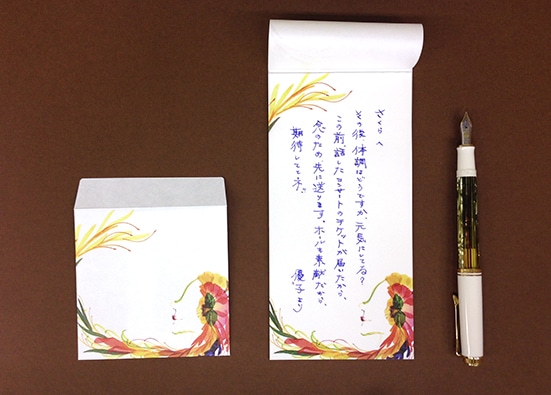 さくらへ
その後、体調はどうですか、元気にしてる?
この前、話したコンサートのチケットが届いたから、
念のため先に送ります。ホールも素敵だから、
期待しててネ。
優子より